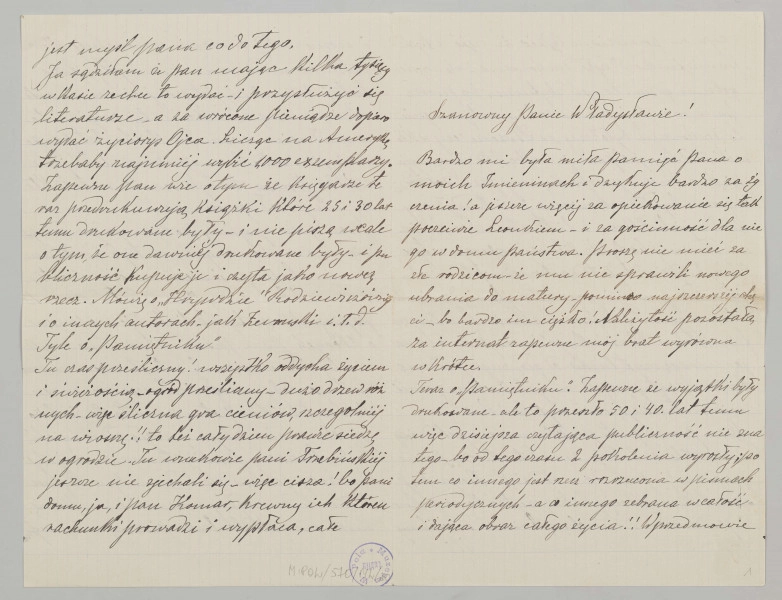 jest myśl pana co do tego.
Ja sądziłam że pan mając kilka tysięcy
w kasie zechce to wydać – i przysłużyć się
literaturze – a za wrócone pieniądze dopiero
wydać życiorys Ojca. Licząc na Amerykę,
trzebaby najmniej wybić 2000 exemplarzy.
Zapewne pan wie o tym że księgarze te
raz przedrukowują książki które 25 i 30 lat
temu drukowane były – i nie piszą wcale
o tym że one dawniej drukowane były – i pu
bliczność kupuje je i czyta jako nową
rzecz. Mówię o „Krzywdzie" Rodziewiczówny
i o innych autorach – jak i.t.d.
Tyle o „Pamiętniku".
Tu czas prześliczny! wszystko oddycha życiem
i świeżością – ogród prześliczny – dużo drzew róż
nych – więc śliczna gra cieniów, szczególniej
na wiosnę!! to też cały dzień prawie siedzę
w ogrodzie. Tu wnukowie pani Trzebińskiej
jeszcze nie zjechali się – więc cisza! bo pani
domu, ja, i pan Komar, krewny ich który
rachunki prowadzi i wypłaca, całe
Szanowny Panie Władysławie!
Bardzo mi była miła pamięć pana o
moich Imieninach i dzękuję bardzo za ży
czenia! a jeszcze więcej za opiekowanie się tak
poczciwie Leonkiem – i za gościnność dla nie
go w domu państwa. Proszę nie mieć za
złe rodzicom – że mu nie sprawili nowego
ubrania do matury – pomimo najszczerszej chę
ci – bo bardzo im ciężko! Należytość pozostałą
za internat zapewne mój brat wyrówna
wkrótce.
Teraz o „Pamiętniku". Zapewne że wyjątki były
drukowane – ale to przeszło 50 i 40. lat temu
więc dzisiejsza czytająca publiczność nie zna
tego – bo od tego czasu 2 pokolenia wyrosły; po
tem co innego jest rzecz rozrzucona w pismach
periodycznych – a co innego zebrana w całość –
i dająca obraz całego życia!! W przedmowie
1